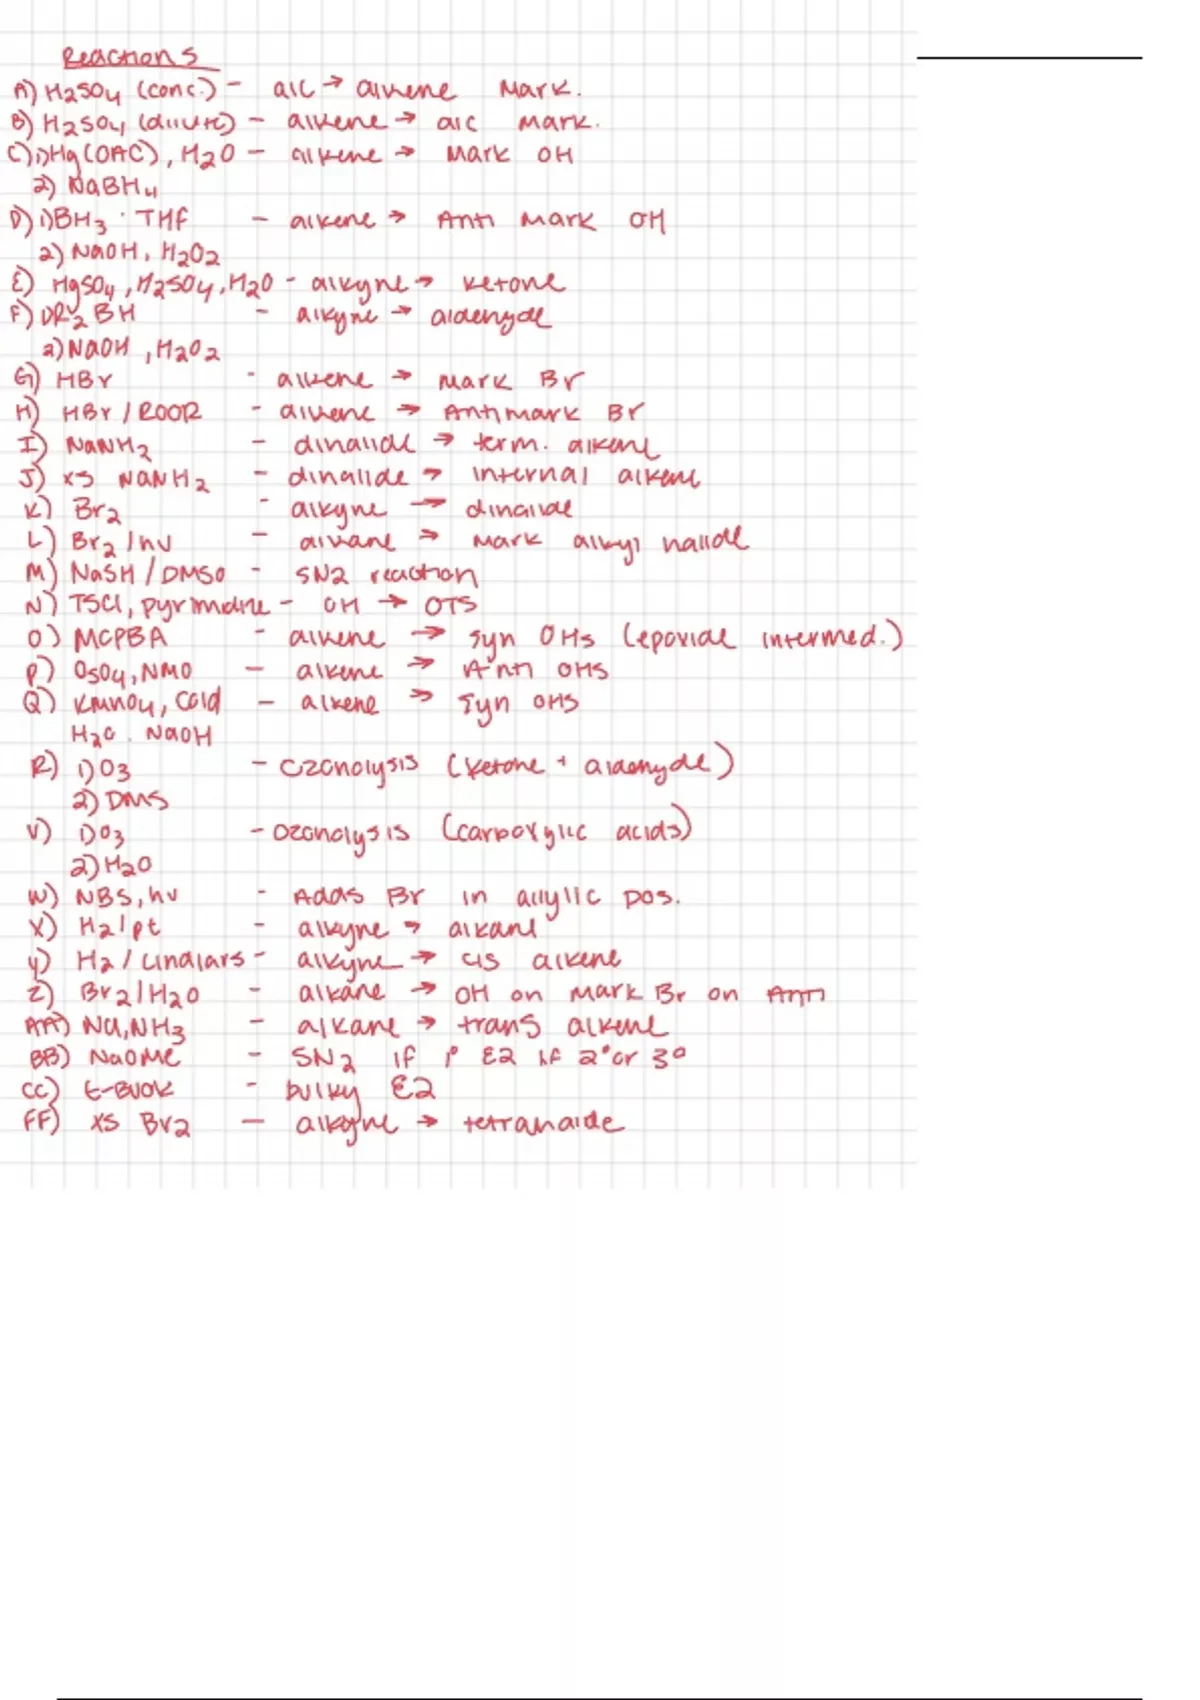 Reactions
A) H2SO4 (conc.) - alc → alkene Mark.
B) H2SO4 (dilute) - alkene → alc mark.
C) 1) Hg(OAC), H2O - alkene → Mark OH
2) NaBH4
D) 1) BH3 · THF - alkene → Anti Mark OH
2) NaOH, H2O2
E) HgSO4, H2SO4, H2O - alkyne → ketone
F) 1) R2BH - alkyne → aldehyde
2) NaOH, H2O2
G) HBr - alkene → Mark Br
H) HBr / ROOR - alkene → Antimark Br
I) NaNH2 - dihalide → term. alkene
J) xs NaNH2 - dihalide → internal alkene
K) Br2 - alkyne → dihalide
L) Br2 / hv - alkane → Mark alkyl halide
M) NaSH / DMSO - SN2 reaction
N) TSCl, pyrimidine - OH → OTS
O) MCPBA - alkene → Syn OHs (epoxide intermed.)
P) OsO4, NMO - alkene → Anti OHs
Q) KMnO4, Cold - alkene → Syn OHs
H2O . NaOH
R) 1) O3 - Ozonolysis (ketone + aldehyde)
2) DMS
V) 1) O3 - Ozonolysis (carboxylic acids)
2) H2O
W) NBS, hv - Adds Br in allylic pos.
X) H2 / pt - alkyne → alkane
Y) H2 / Lindlars - alkyne → cis alkene
Z) Br2 / H2O - alkane → OH on Mark Br on Anti
AA) Na, NH3 - alkane → trans alkene
BB) NaOMe - SN2 if 1° E2 if 2° or 3°
CC) t-BuOK - bulky E2
FF) xs Br2 - alkyne → tetrahaide